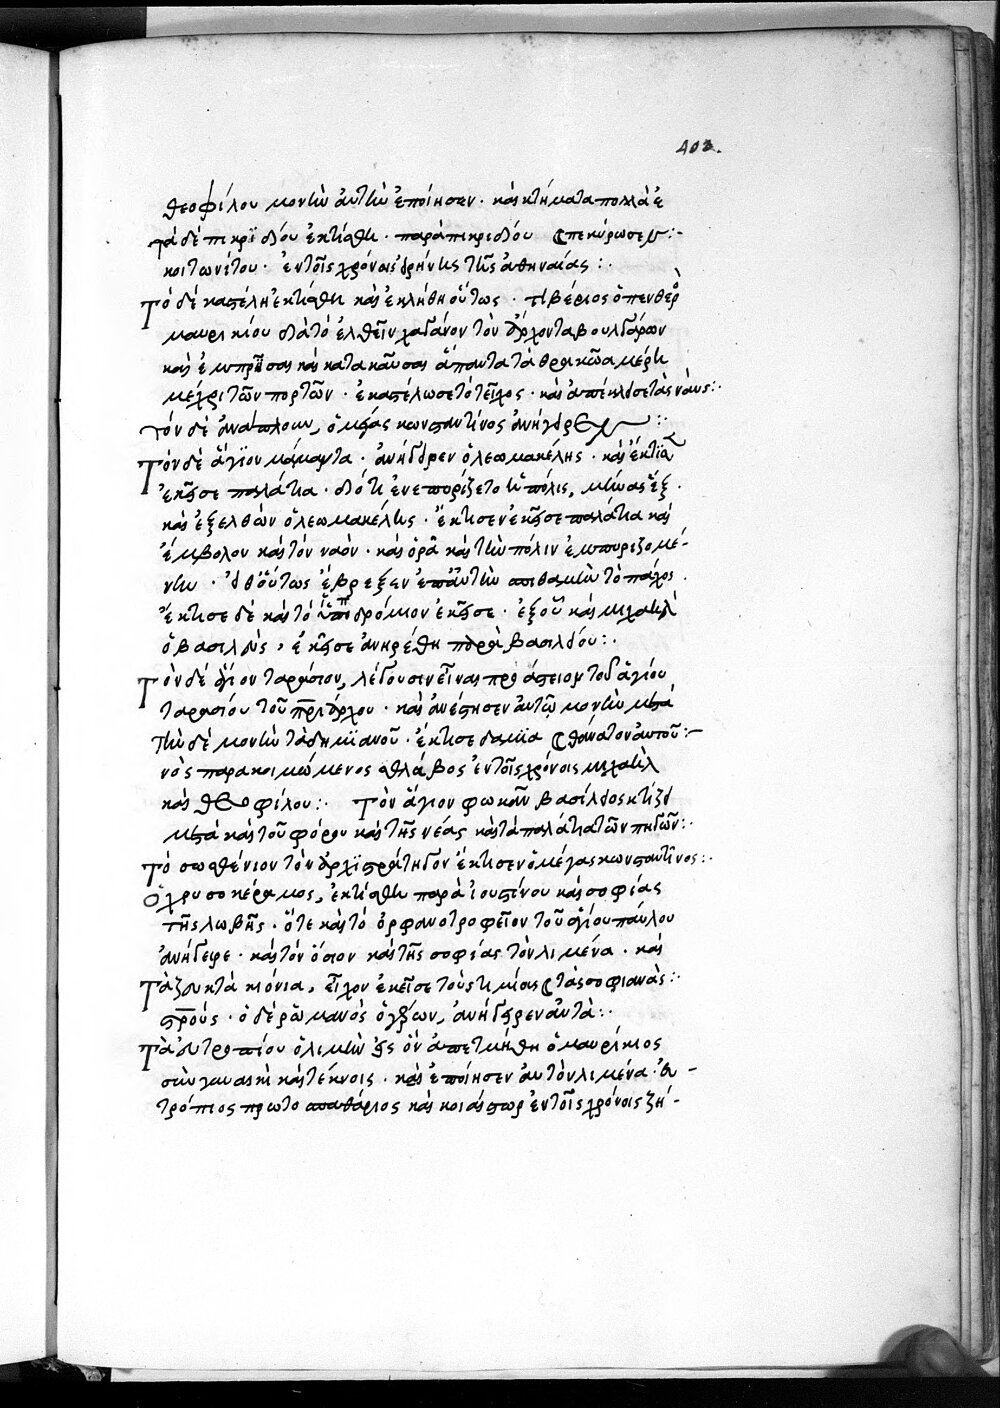 403.
θεοφίλου μονὴν αὐτὴν ἐποίησεν · καὶ κτήματα πολλὰ ἐ
τὰ δὲ πικριδίου ἐκτίσθη · παρὰ πικριδίου πεκύρωσεν :-
κοιτωνίτου · ἐν τοῖς χρόνοις εἰρήνης τῆς ἀθηναίας :·
Τὸ δὲ καστέλιν ἐκτίσθη καὶ ἐκλήθη οὕτως · τιβέριος ὁ πενθερὸς
μαυρικίου διὰ τὸ ἐλθεῖν χαγάνον τὸν ἄρχοντα βουλγάρων
καὶ ἐμπρῆσαι καὶ κατακαῦσαι ἅπαντα τὰ θρακῶα μέρη
μέχρι τῶν πορτῶν · ἐκαστέλωσε τὸ τεῖχος · καὶ ἀπέκλεισε τὰς ναῦς :·
τὸν δὲ ἀνάπλουν, ὁ μέγας κωνσταντῖνος ἀνήγειρεν :·
Τὸν δὲ ἅγιον μάμαντα · ἀνήγειρεν ὁ λεωμακέλης · καὶ ἔκτισεν
ἐκεῖσε παλάτια · διότι ἐνεπορίζετο ἡ πόλις, μῆνας ἕξ ·
καὶ ἐξελθὼν ὁ λεωμακέλης · ἔκτισεν ἐκεῖσε παλάτια καὶ
ἔμβολον καὶ τὸν ναὸν · καὶ ὁρᾶ καὶ τὴν πόλιν ἐμπυριζομέ-
νην · εἶθ' οὕτως ἔβρεξεν ἐπ' αὐτὴν σπιθαμὴν τὸ πάχος ·
ἔκτισε δὲ καὶ τὸ ἱπποδρόμιον ἐκεῖσε · ἐξ οὗ καὶ μιχαὴλ
ὁ βασιλεὺς, ἐκεῖσε ἀνηρέθη παρὰ βασιλείου :·
Τὸν δὲ ἅγιον ταράσιον, λέγουσιν εἶναι προάστειον τοῦ ἁγίου
ταρασίου τοῦ πριάρχου · καὶ ἀνέστησεν αὐτῷ μονὴν μετὰ
Τὴν δὲ μονὴν τὰ δημιανοῦ · ἔκτισε δαμια θάνατον αὐτοῦ :-
νὸς παρακοιμώμενος σθλάβος ἐν τοῖς χρόνοις μιχαὴλ
καὶ θεοφίλου :· Τὸν ἅγιον φωκᾶν βασίλειος κτίζει
μετὰ καὶ τοῦ φόρου καὶ τῆς νέας καὶ τὰ παλάτια τῶν πηγῶν :·
Τὸ σωσθένιον τὸν ἀρχιστράτηγον ἔκτισεν ὁ μέγας κωνσταντῖνος :·
Ὁ χρυσοκέραμος, ἐκτίσθη παρὰ ἰουστίνου καὶ σοφίας
τῆς λωβῆς · ὅτε καὶ τὸ ὀρφανοτροφεῖον τοῦ ἁγίου παύλου
ἀνήγειρε · καὶ τὸν ὅσιον καὶ τῆς σοφίας τὸν λιμένα · καὶ
Τὰ ζευκτὰ κιόνια, εἶχον ἐκεῖσε τοὺς τιμίας τὰς σοφιανὰς :·
στροὺς · ὁ δὲ ῥωμανὸς ὁ γέρων, ἀνήγειρεν αὐτὰ :·
Τὰ εὐτροπίου ὁ λιμὴν εἰς ὃν ἀπετμήθη ὁ μαυρίκιος
σὺν γυναικὶ καὶ τέκνοις · καὶ ἐποίησεν αὐτὸν λιμένα · εὐ-
τρόπιος πρωτοσπαθάριος καὶ κοιάστωρ ἐν τοῖς χρόνοις ζή-